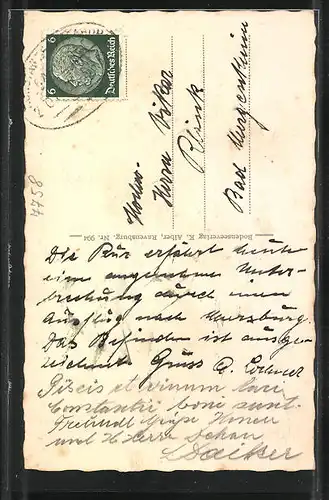 6 Deutsches Reich 6
7758
Herrn Vikar
Bad Mergentheim
Bodenseeverlag K. Alber, Ravensburg. Nr. 904
Die Kur erfährt heute
eine angenehme Unter-
brechung durch einen
Ausflug nach Meersburg.
Das Befinden ist ausge-
zeichnet. Gruss
Piscis et vinum laci
Constantiae boni sunt.
Freundl. Grüße Ihnen
und H. Herrn